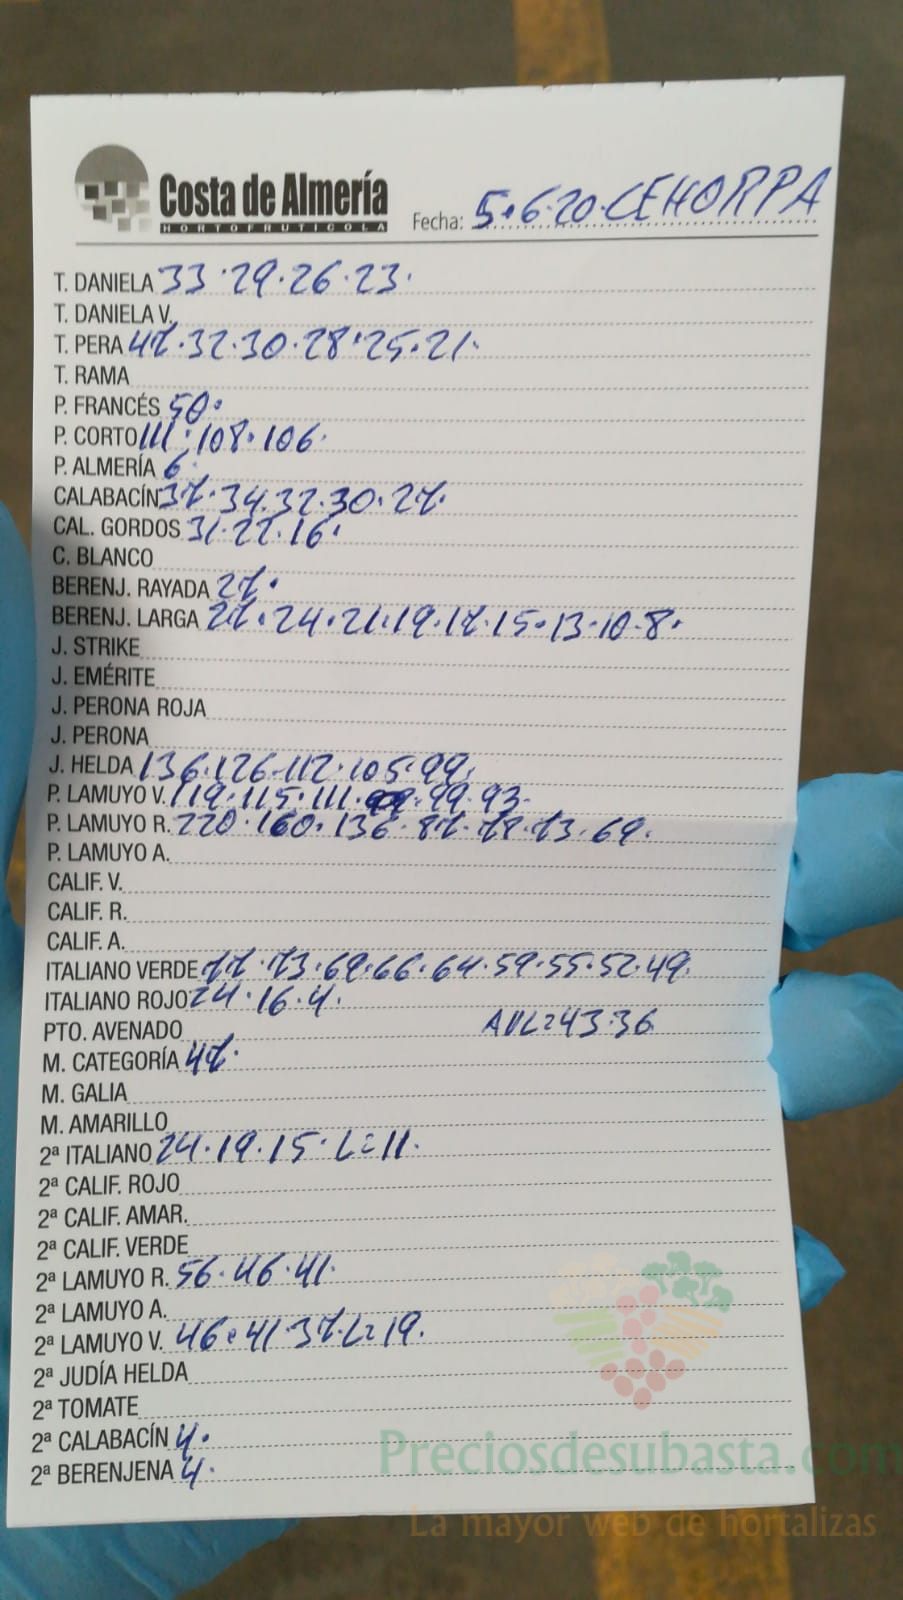 Costa de Almería
HORTOFRUTICOLA
Fecha: 5·6·20·CEHORPA
T. DANIELA 33·29·26·23·
T. DANIELA V.
T. PERA 47·32·30·28·25·21·
T. RAMA
P. FRANCÉS 50·
P. CORTO 111·108·106·
P. ALMERÍA 6·
CALABACÍN 37·34·32·30·27·
CAL. GORDOS 31·22·16·
C. BLANCO
BERENJ. RAYADA 27·
BERENJ. LARGA 27·24·21·19·17·15·13·10·8·
J. STRIKE
J. EMÉRITE
J. PERONA ROJA
J. PERONA
J. HELDA 136·126·112·105·99·
P. LAMUYO V. 119·115·111·99·93·
P. LAMUYO R. 220·160·136·87·78·73·69·
P. LAMUYO A.
CALIF. V.
CALIF. R.
CALIF. A.
ITALIANO VERDE 77·73·69·66·64·59·55·52·49·
ITALIANO ROJO 24·16·4·
PTO. AVENADO AVL=43·36
M. CATEGORÍA 47·
M. GALIA
M. AMARILLO
2ª ITALIANO 24·19·15·L=11·
2ª CALIF. ROJO
2ª CALIF. AMAR.
2ª CALIF. VERDE
2ª LAMUYO R. 56·46·41·
2ª LAMUYO A.
2ª LAMUYO V. 46·41·37·L=19·
2ª JUDÍA HELDA
2ª TOMATE
2ª CALABACÍN 4·
2ª BERENJENA 4·
Preciosdesubasta.com
La mayor web de hortalizas